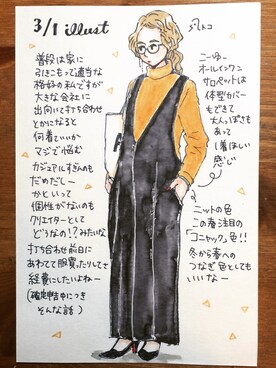 3/1 illust
普段は家に
引きこもって適当な
格好の私ですが
大きな会社に
出向いて打ち合わせ
とかになると
何着ていいか
マジで悩む
カジュアルすぎんのも
だめだしー
かといって
個性がないのも
クリエイターとして
どうなの!?みたいな
打ち合わせ前日に
あわてて服買ったりしてさ
経費にしたいよねー
(確定申告中につき
そんな話)
こーゆー
オールインワン
サロペットは
体型カバー
もできて
大人っぽさも
あって
1着ほしい
感じ
ニットの色
この春注目の
「コニャック」色!!
冬から春への
つなぎ色としても
いいなー